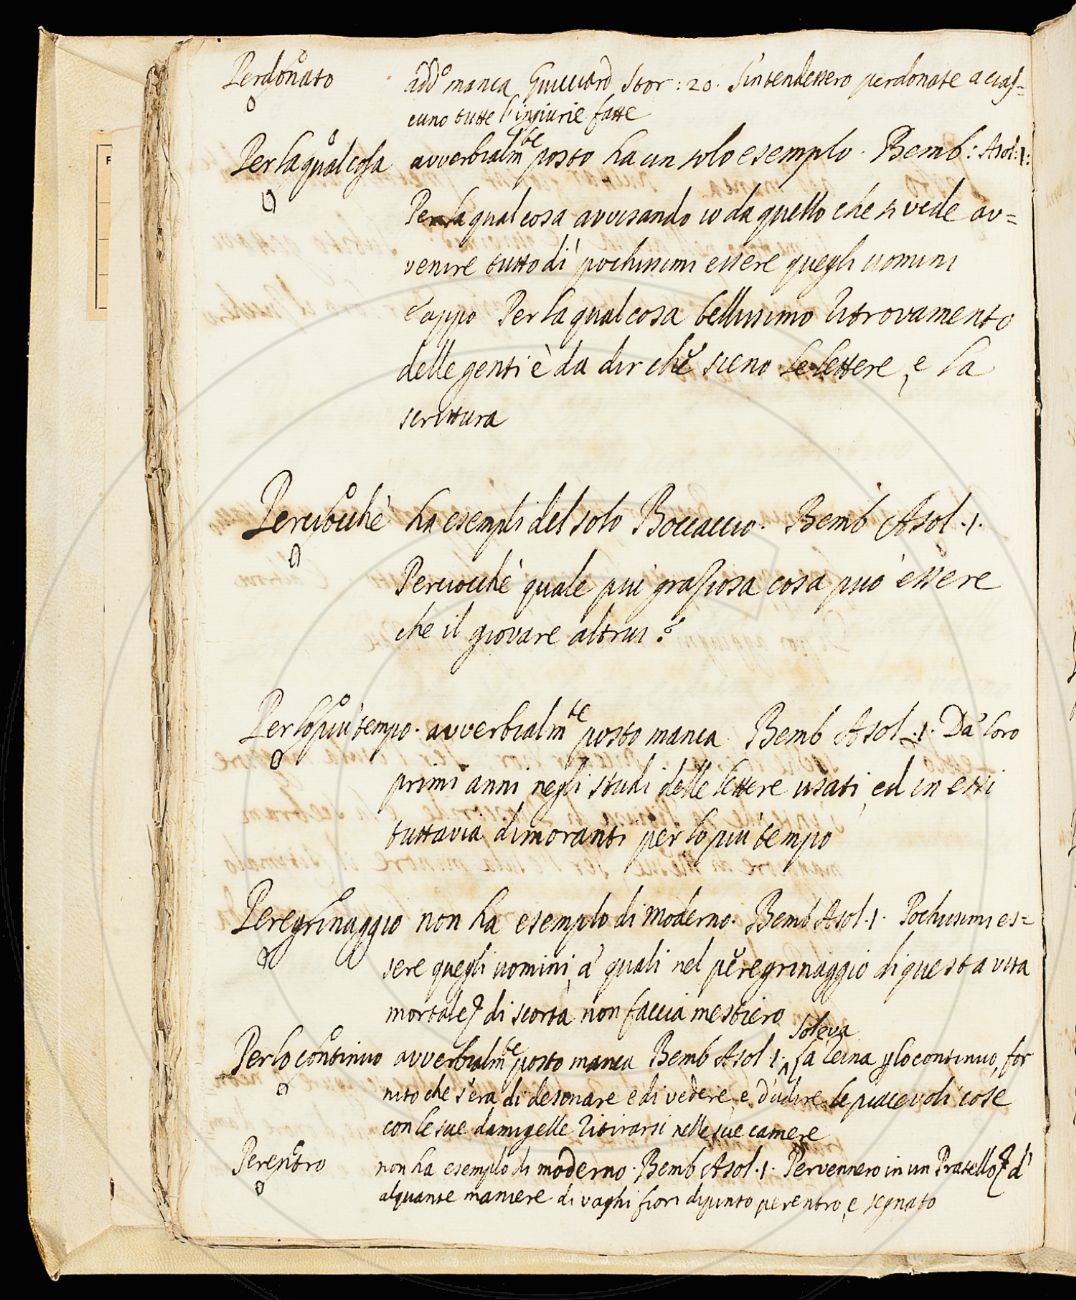 Perdonato add.o manca Guicciard Stor: 20. S'intendessero perdonate a cias=
cuno tutte l'ingiurie fatte
Per la qual cosa avverbialm.te posto ha un solo esempio. Bemb: Asol: 1:
Per la qual cosa avvisando io da quello che si vede av=
venire tutto dì pochissimi essere quegli uomini
E appo Per la qual cosa bellissimo ritrovamento
delle genti è da dir che sieno le lettere, e la
scrittura
Perciocchè ha esempli del solo Boccaccio. Bemb Asol. 1.
Perciocchè quale più graziosa cosa può essere
che il giovare altrui?
Per lo più tempo. avverbialm.te posto manca Bemb Asol. 1. Da' loro
primi anni negli studi delle lettere usati, ed in essi
tuttavia dimoranti per lo più tempo
Peregrinaggio non ha esemplo di moderno. Bemb Asol. 1. Pochissimi es=
sere quegli uomini a' quali nel peregrinaggio di questa vita
mortale di scorta non faccia mestiero
soleva
Per lo continuo avverbialm.te posto manca Bemb Asol. 1. la Reina p lo continuo, for
nito che s'era di desinare e di vedere, e d'udire le piacevoli cose
con le sue damigelle ritirarsi nelle sue camere
Perentro non ha esemplo di moderno. Bemb Asol. 1. Pervennero in un Pratello d'
alquante maniere di vaghi fiori dipinto per entro, e segnato